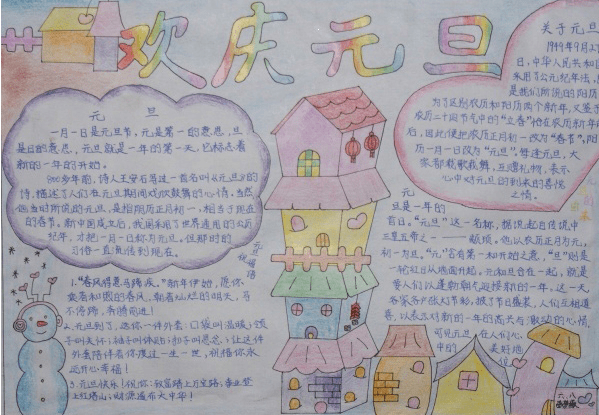 欢庆元旦
元 旦
一月一日是元旦节,元是第一的意思,旦
是日的意思,元旦就是一年的第一天,它标志着
新的一年的开始。
900多年前,诗人王安石写过一首名叫《元旦》的
诗,描述了人们在元旦期间欢欣鼓舞的心情,当然
他当时所说的元旦,是指阴历正月初一,相当于现在
的春节。新中国成立后,我国采用了世界通用的公历
纪年,才把一月一日称为元旦。但那时的
习俗一直流传到现在。
关于元旦
1949年9月27
日,中华人民共和国
采用了公元纪年法,
是我们所说的阳历
为了区别农历和阳历两个新年,又鉴于
农历二十四节气中的"立春"恰在农历新年
后,因此便把农历正月初一改为"春节",阳
历一月一日改为"元旦"。每逢元旦,大
家都载歌载舞,互赠礼物,表示
心中对元旦的到来的喜悦
之情。
元旦祝福语
1."春风得意马蹄疾。"新年伊始,愿你
乘着和煦的春风,朝着灿烂的明天,马
不停蹄,奔腾前进!
2.元旦到了,送你一件外套:口袋叫温暖;领
子叫关怀;袖子叫体贴;扣子叫思念;让这件
外套陪伴着你度过一生一世,祝福你永
远开心幸福!
3.元旦快乐!祝你:致富踏上万宝路;事业登
上红塔山;财源遍布大中华!
元
旦是一年的
首日。"元旦"这一名称,据说起自传说中
三皇五帝之一——颛顼,他以农历正月为元,
初一为旦。"元"含有第一和开始之意,"旦"则是
一轮红日从地面升起,元和旦合在一起,就是
要人们以蓬勃朝气迎接新的一年。这一天
客家各户做大节彩,披了节日盛装,人们互相道
喜,以表示对新的一年的高兴与激动的心情,
可见元旦在人们心
中的美好地
位
六.八